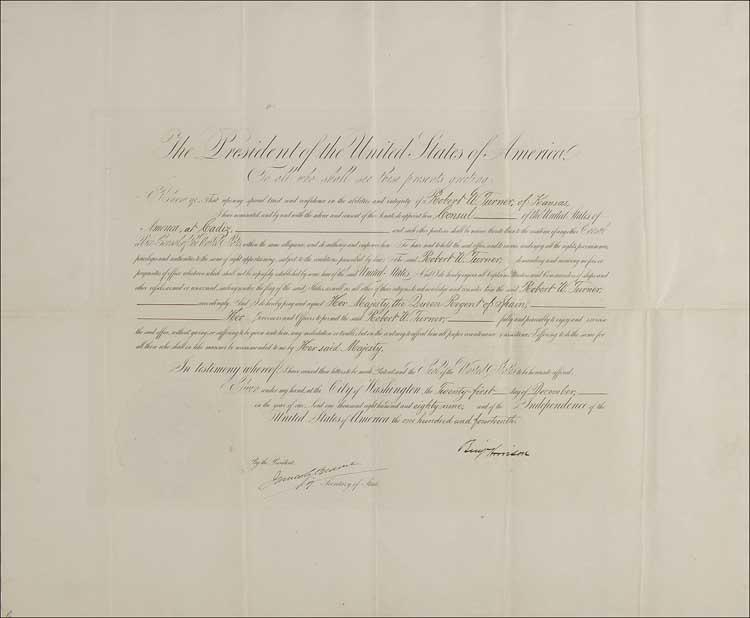 The President of the United States of America,
To all who shall see these presents, greeting:
Know ye; That reposing special trust and confidence in the abilities and integrity of Robert W. Turner, of Kansas,
I have nominated and by and with the advice and consent of the Senate do appoint him Consul of the United States of
America, at Cadiz, and such other parts as shall be nearer thereto than to the residence of any other Consul
or Vice Consul of the United States within the same allegiance, and do authorize and empower him To have and to hold the said office and to exercise and enjoy all the rights, preeminences,
privileges and authorities to the same of right appertaining, subject to the conditions prescribed by law; The said Robert W. Turner, demanding and receiving no fees or
perquisites of office whatever which shall not be expressly established by some law of the said United States. And I do hereby enjoin all Captains, Masters and Commanders of ships and
other vessels armed or unarmed, sailing under the flag of the said States, as well as all other of their citizens to acknowledge and consider him the said Robert W. Turner,
accordingly. And I do hereby pray and request Her Majesty, the Queen Regent of Spain,
Her Governors and Officers to permit the said Robert W. Turner, fully and peaceably to enjoy and exercise
the said office, without giving, or suffering to be given unto him, any molestation or trouble, but on the contrary to afford him all proper countenance and assistance: I offering to do the same for
all those who shall in like manner be recommended to me by Her said Majesty.
In testimony whereof, I have caused these letters to be made Patent and the Seal of the United States to be hereunto affixed.
Given under my hand, at the City of Washington, the Twenty-first day of December,
in the year of our Lord one thousand eight hundred and eighty-nine; and of the Independence of the
United States of America the one hundred and fourteenth.
Benj Harrison
By the President:
James G. Blaine
Secretary of State.